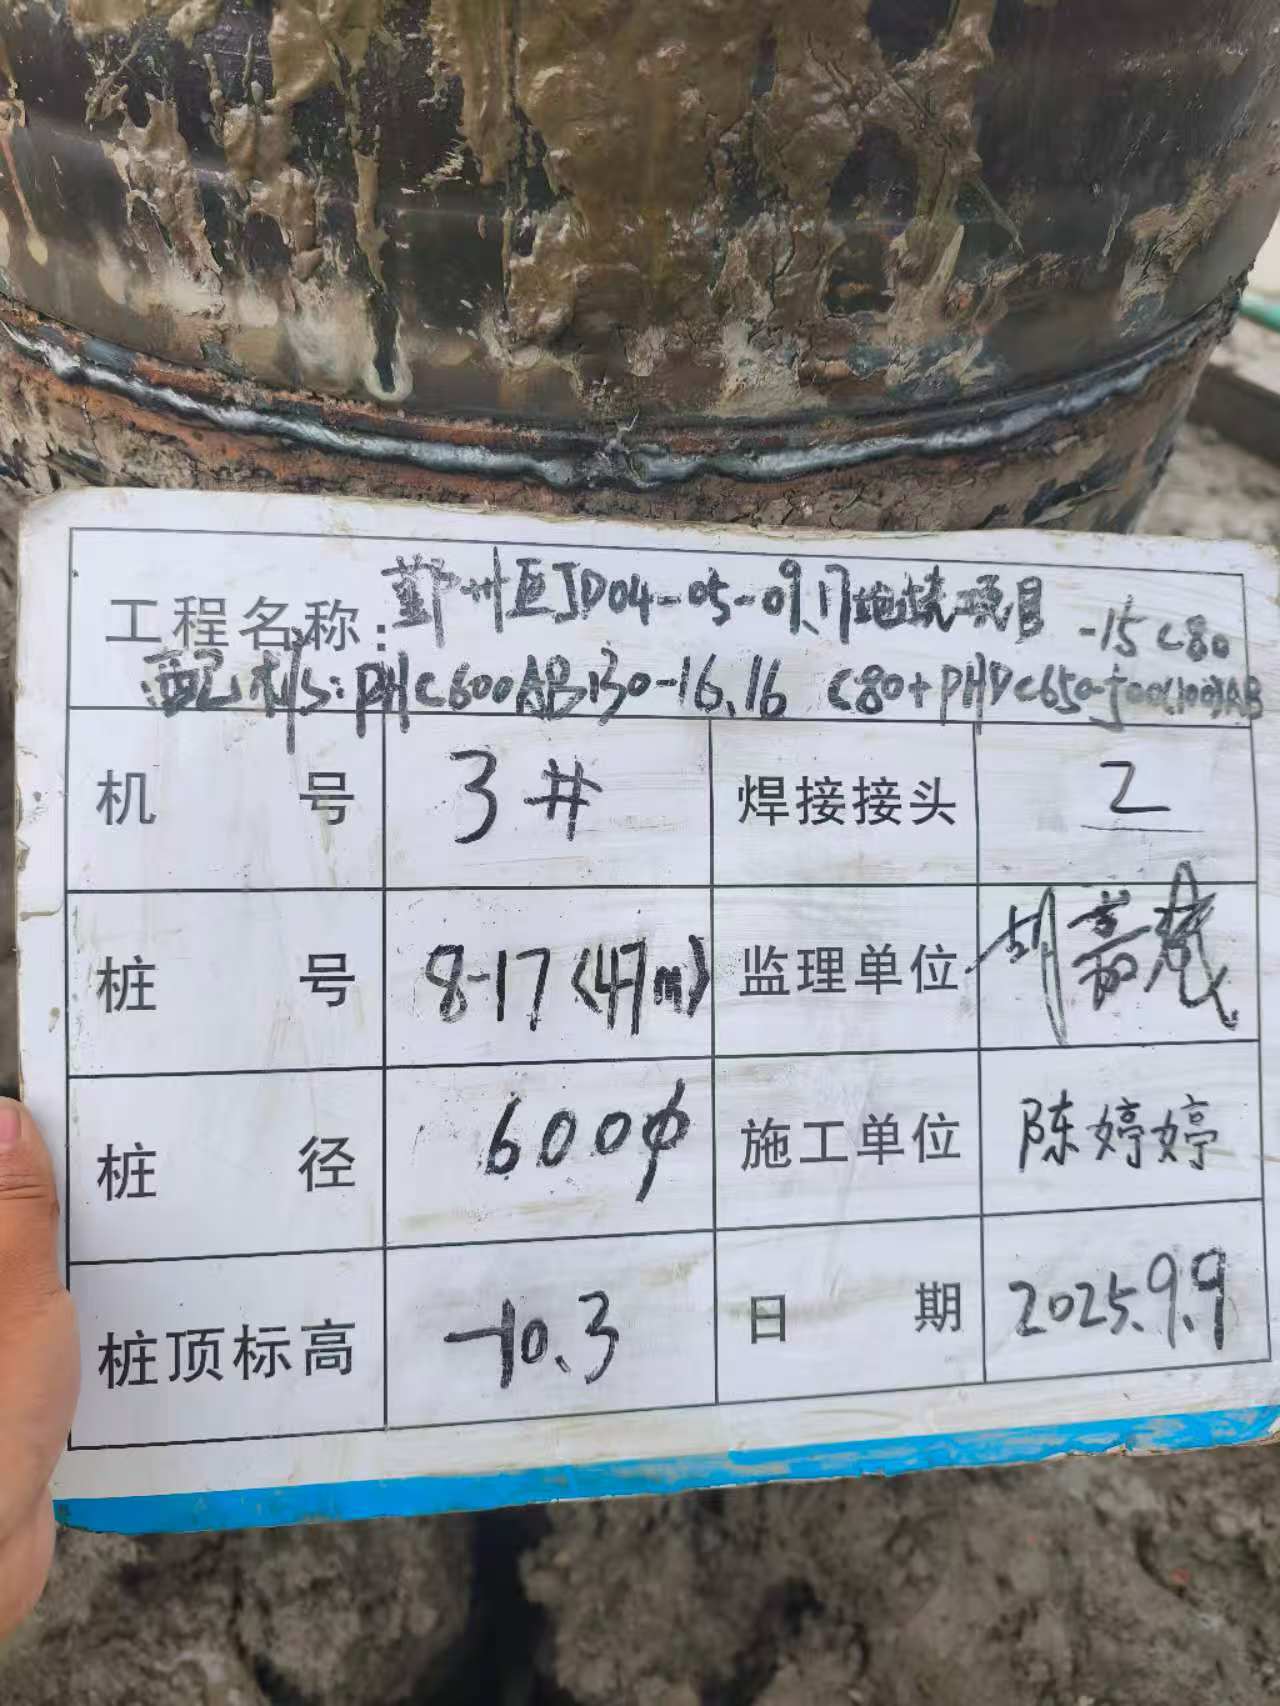 工程名称: 鄞州区JD04-05-09.17地块项目
-15 C80
配桩: PHC600AB130-16.16 C80+PHDC650-500(100)AB
机号 3# 焊接接头 2
桩号 8-17(47m) 监理单位 胡嘉
桩径 600φ 施工单位 陈婷婷
桩顶标高 -10.3 日期 2025.9.9